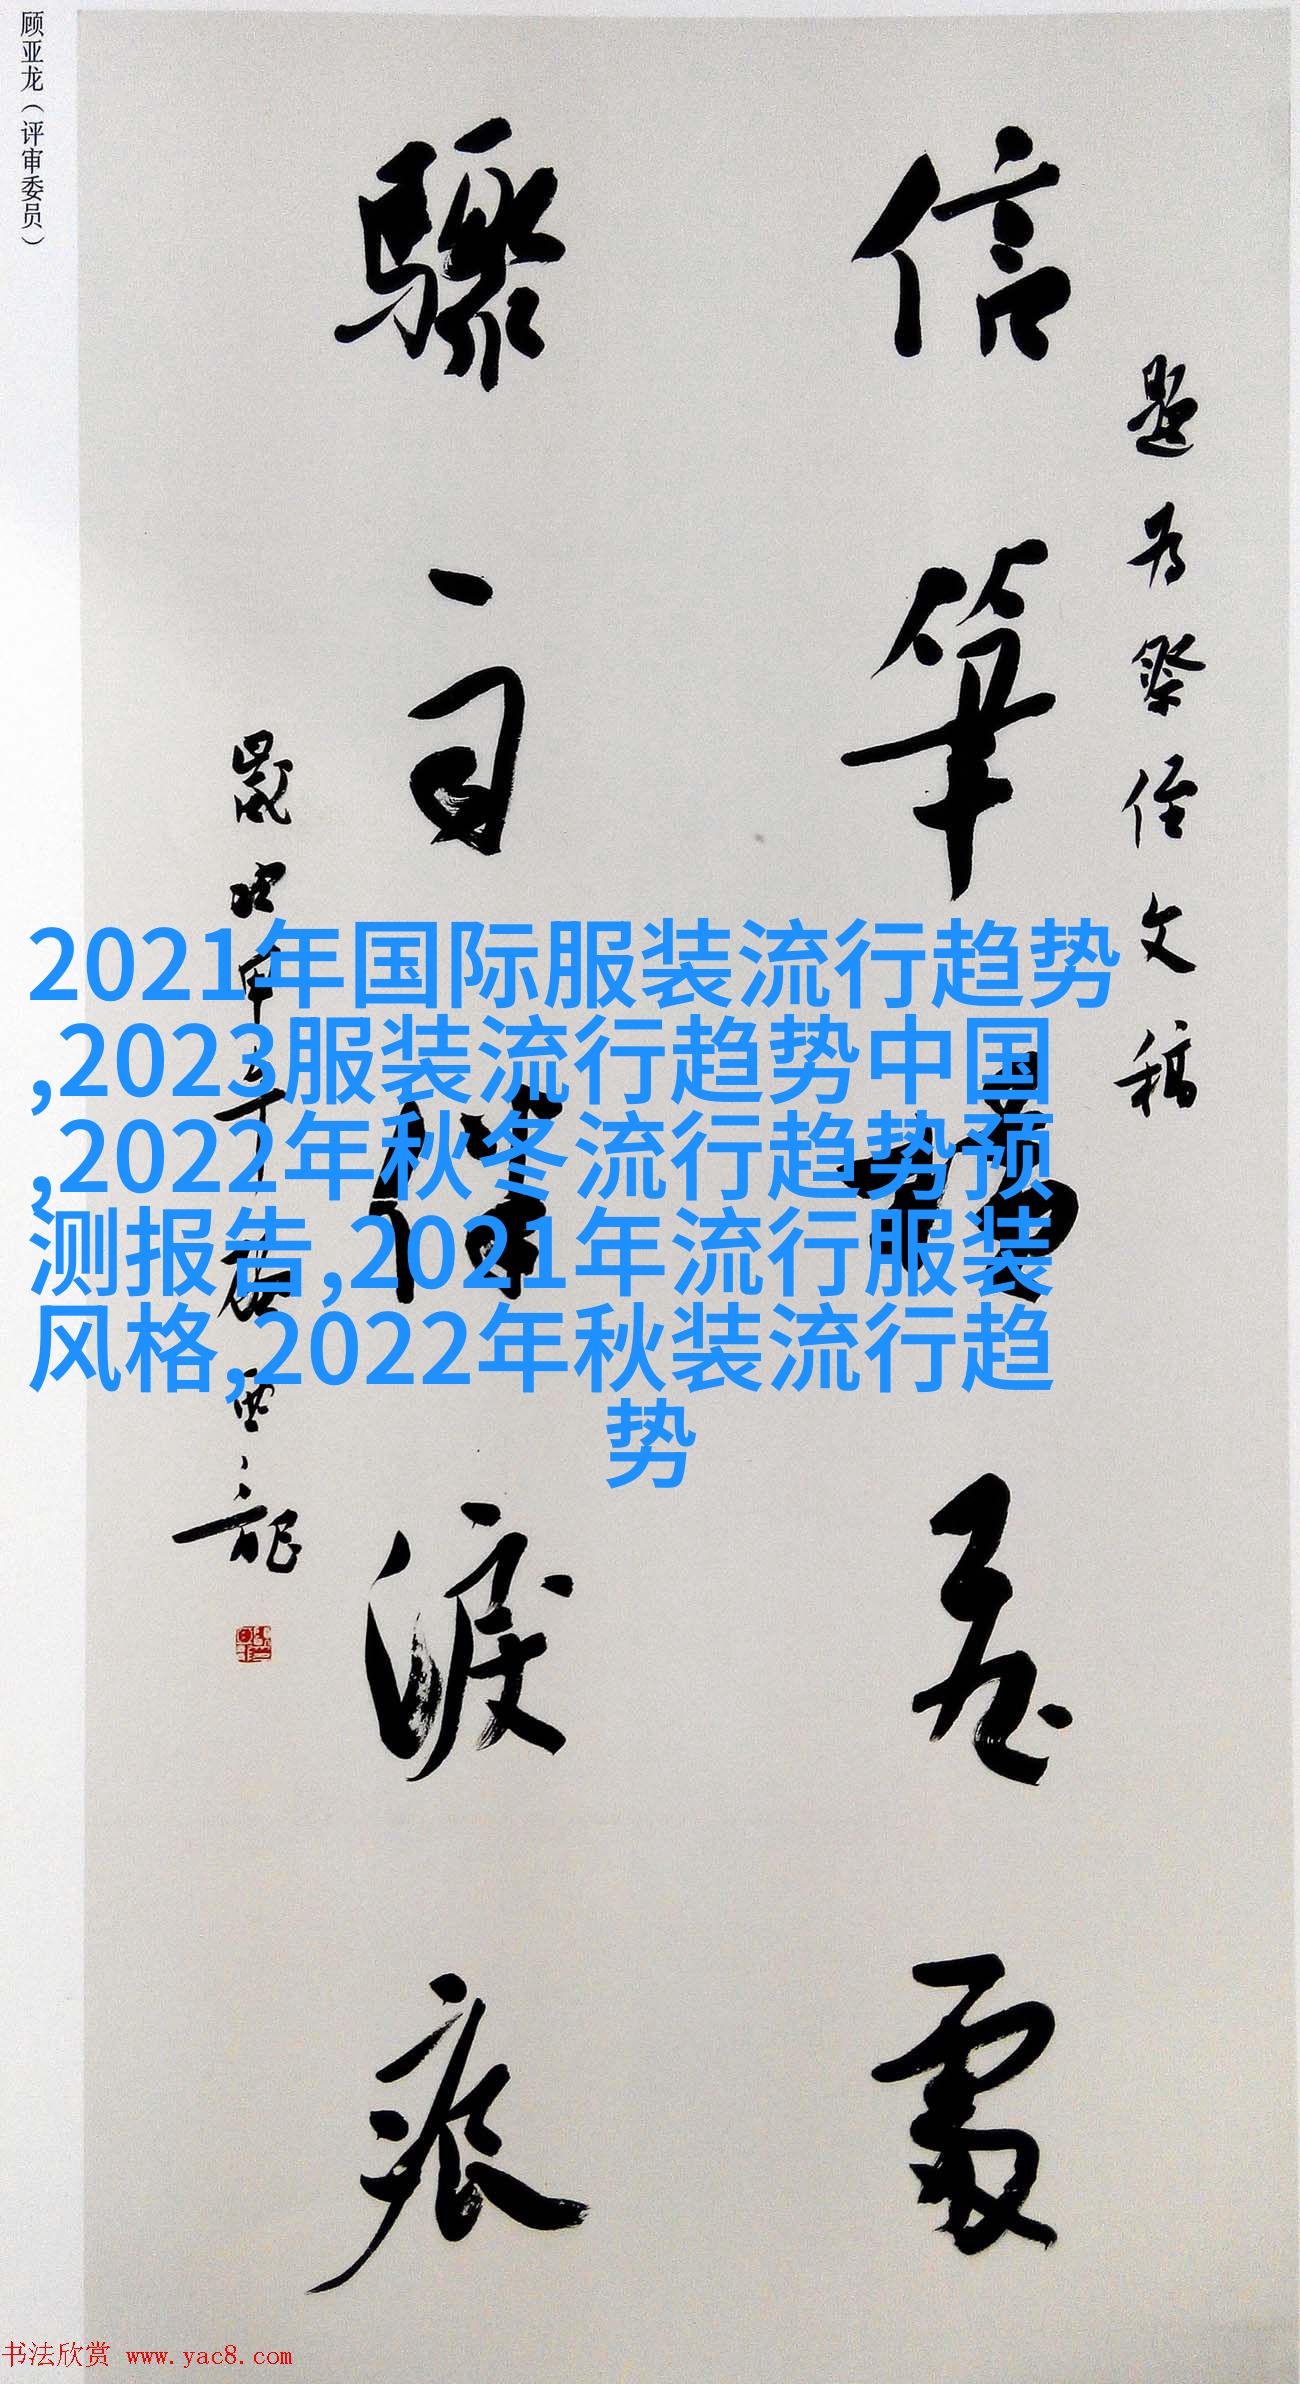 顾亚龙（评审委员）
题为祭侄文稿
信筆處
驟淚痕
歲次甲午亞龍
2021年国际服装流行趋势
,2023服装流行趋势中国
,2022年秋冬流行趋势预
测报告,2021年流行服装
风格,2022年秋装流行趋
势
书法欣赏 www.yac8.com